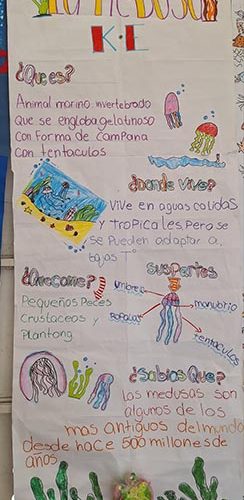 La Medusa
K·E
¿Que es?
Animal marino invertebrado
Que se engloba gelatinoso
Con forma de campana
Con tentaculos
¿Donde Vive?
Vive en aguas calidas
y tropicales, pero se
se pueden adaptar a
bajas T°
¿Que come?
Pequeños Peces
Crustaceos y
Plantong
Sus Partes
manubrio
tentaculos
¿Sabias Que?
las medusas son
algunos de los
mas antiguos del mundo
desde hace 500 millones de
años